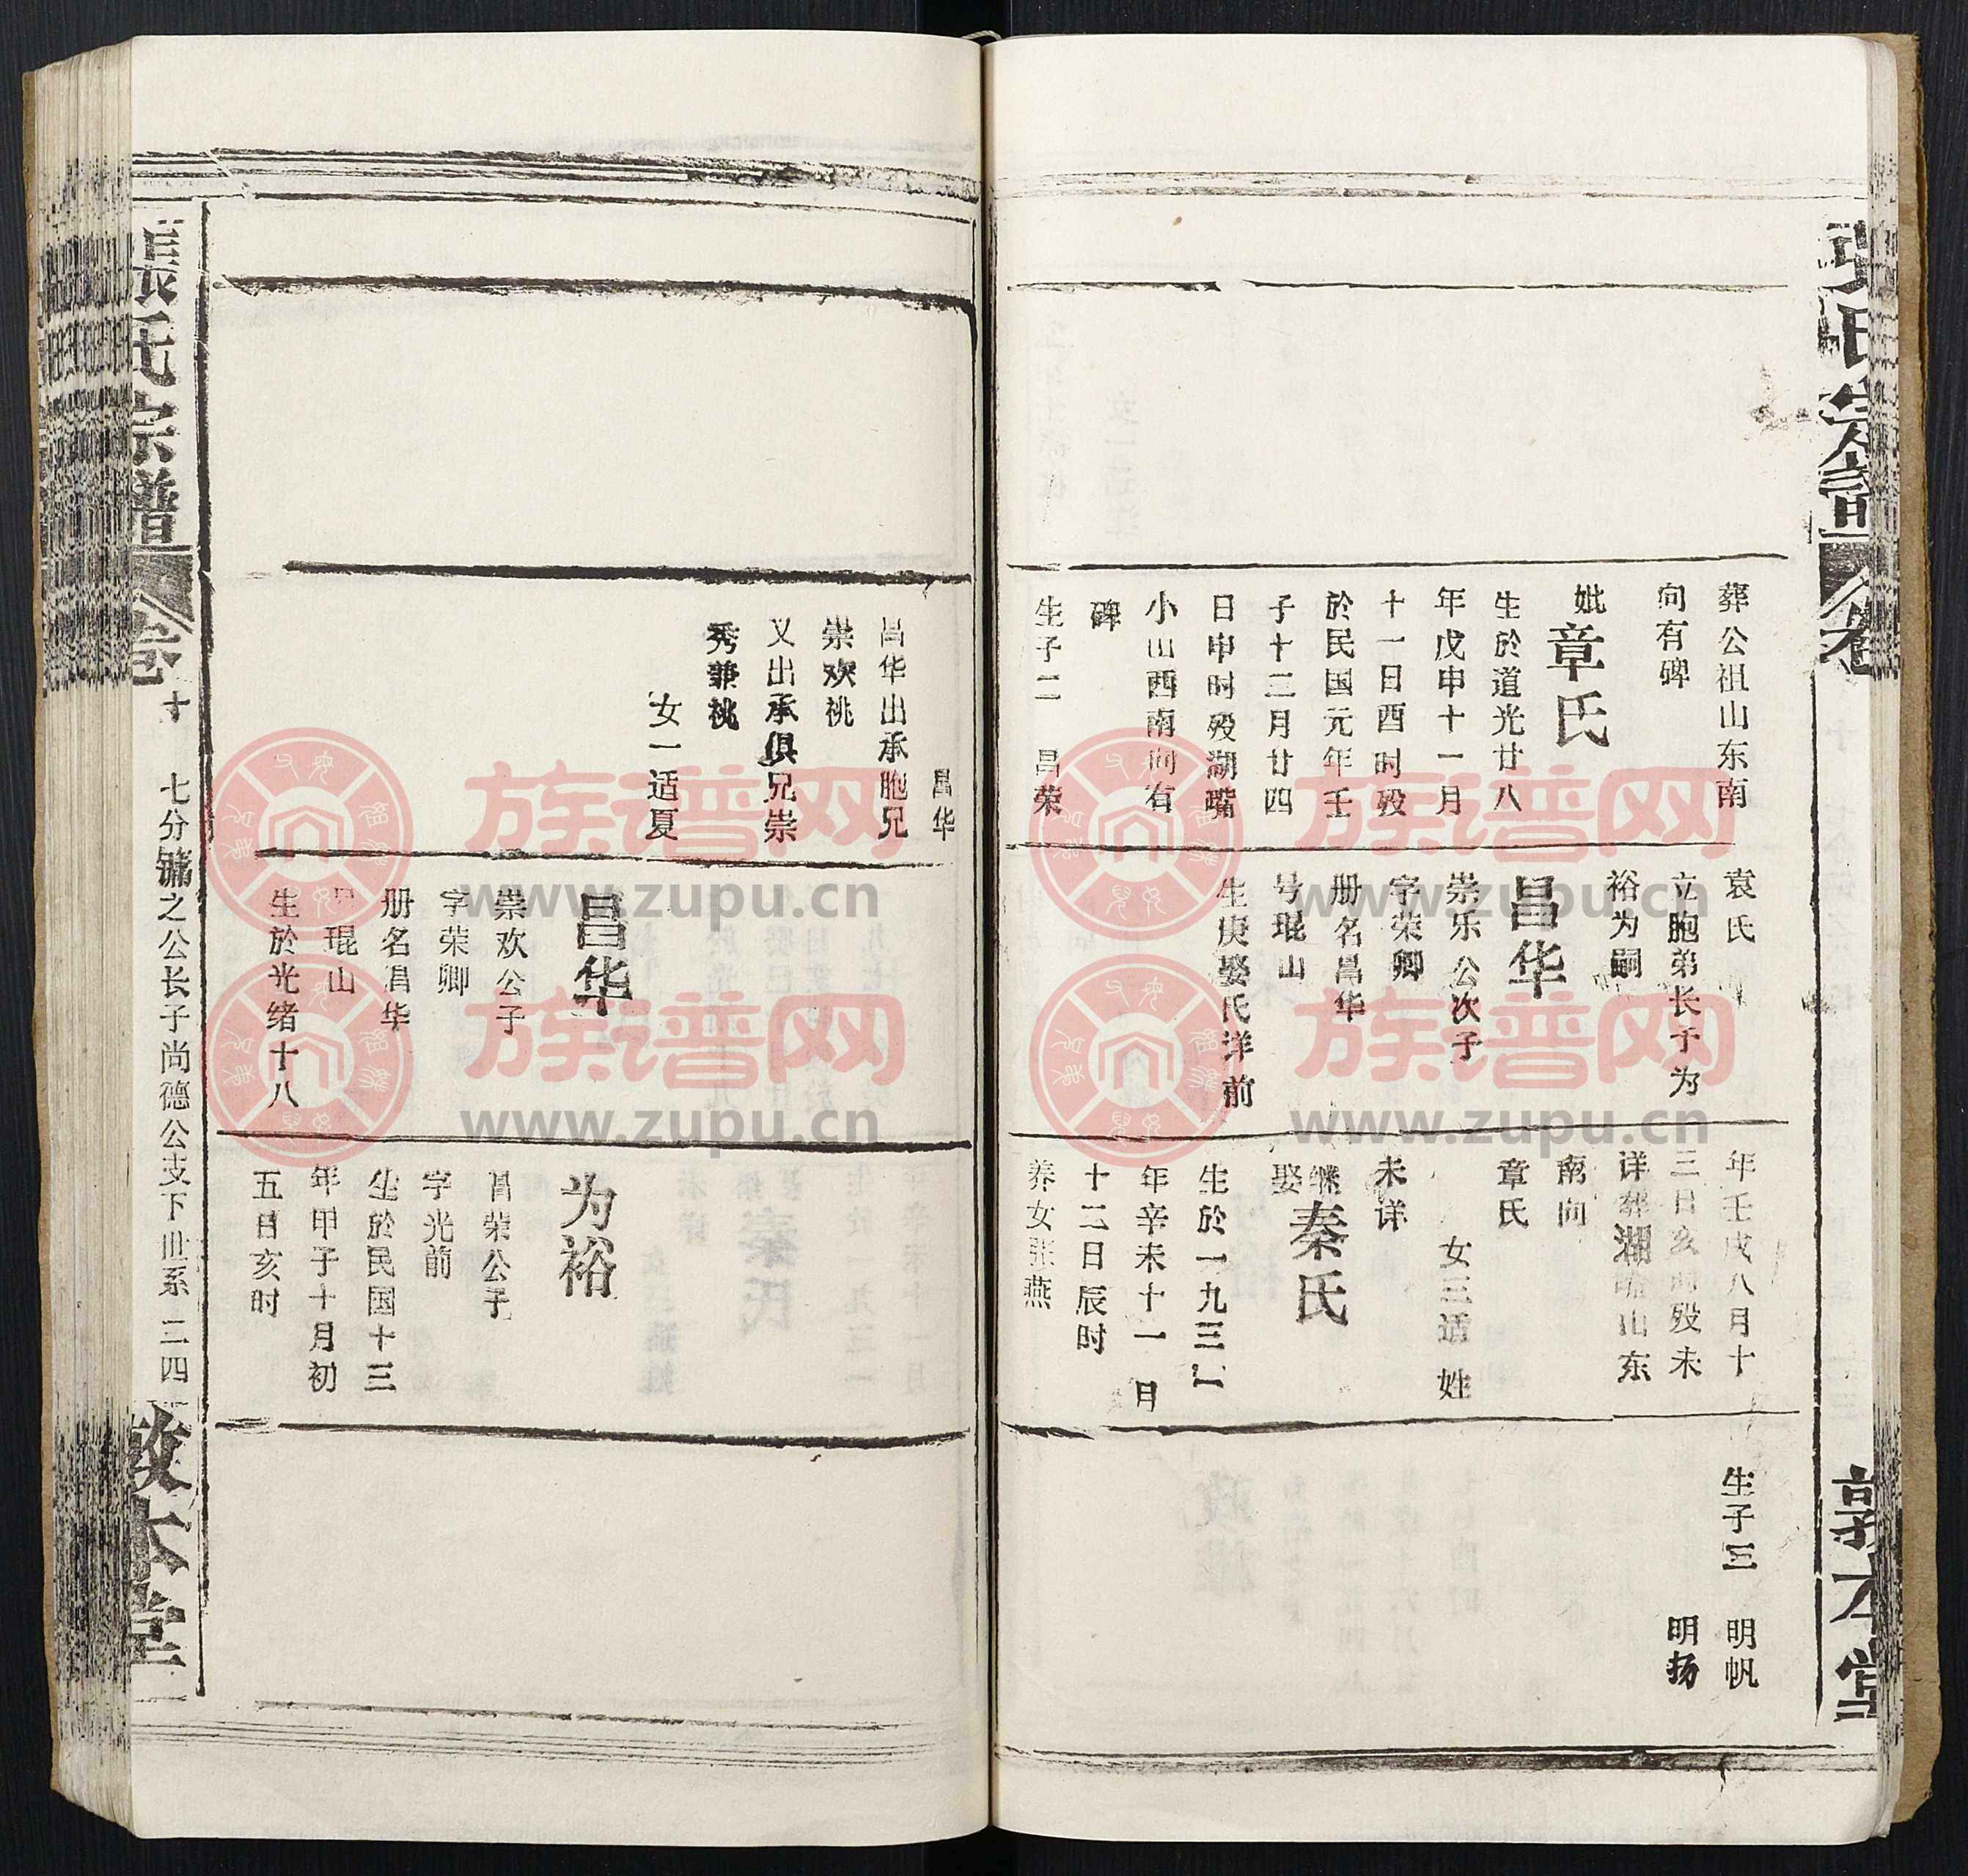 张氏宗谱
卷
敦本堂
葬公祖山东南
向有碑
妣章氏
生於道光廿八
年戊申十一月
十一日酉时殁
於民国元年壬
子十二月廿四
日申时殁湖嘴
小山西南向有
碑
生子二 昌荣
袁氏
立胞弟长子为
裕为嗣
昌华
崇乐公次子
字荣卿
册名昌华
号琨山
生庚娶氏洋前
年壬戌八月十
三日亥时殁未
详葬湖嘴山东
南向
章氏
女三适 姓
未详
继娶秦氏
生於一九三一
年辛未十一月
十二日辰时
养女张燕
生子三 明帆
明扬
昌华
昌华出承胞兄
崇欢祧
又出承俱兄崇
秀兼祧
女一适夏
昌华
崇欢公子
字荣卿
册名昌华
号琨山
生於光绪十八
为裕
昌荣公子
字光前
生於民国十三
年甲子十月初
五日亥时
张氏宗谱
卷十 七分镛之公长子尚德公支下世系 二四
敦本堂
族谱网
www.zupu.cn
族谱网
www.zupu.cn
族谱网
www.zupu.cn
族谱网
www.zupu.cn